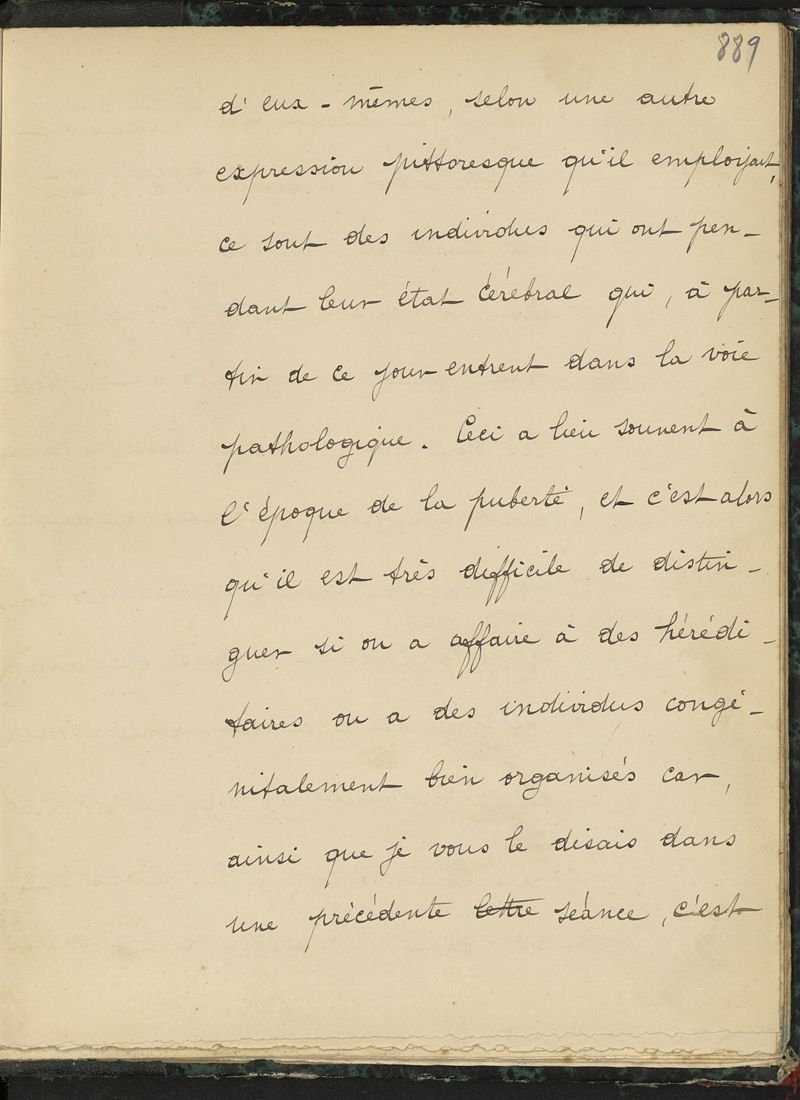 889
d'eux-mêmes, selon une autre
expression pittoresque qu'il employait,
ce sont des individus qui ont pen-
dant leur état cérébral qui, à par-
tir de ce jour entrent dans la voie
pathologique. Ceci a lieu souvent à
l'époque de la puberté, et c'est alors
qu'il est très difficile de distin-
guer si on a affaire à des hérédi-
taires ou a des individus congé-
nitalement bien organisés car,
ainsi que je vous le disais dans
une précédente lettre séance, c'est